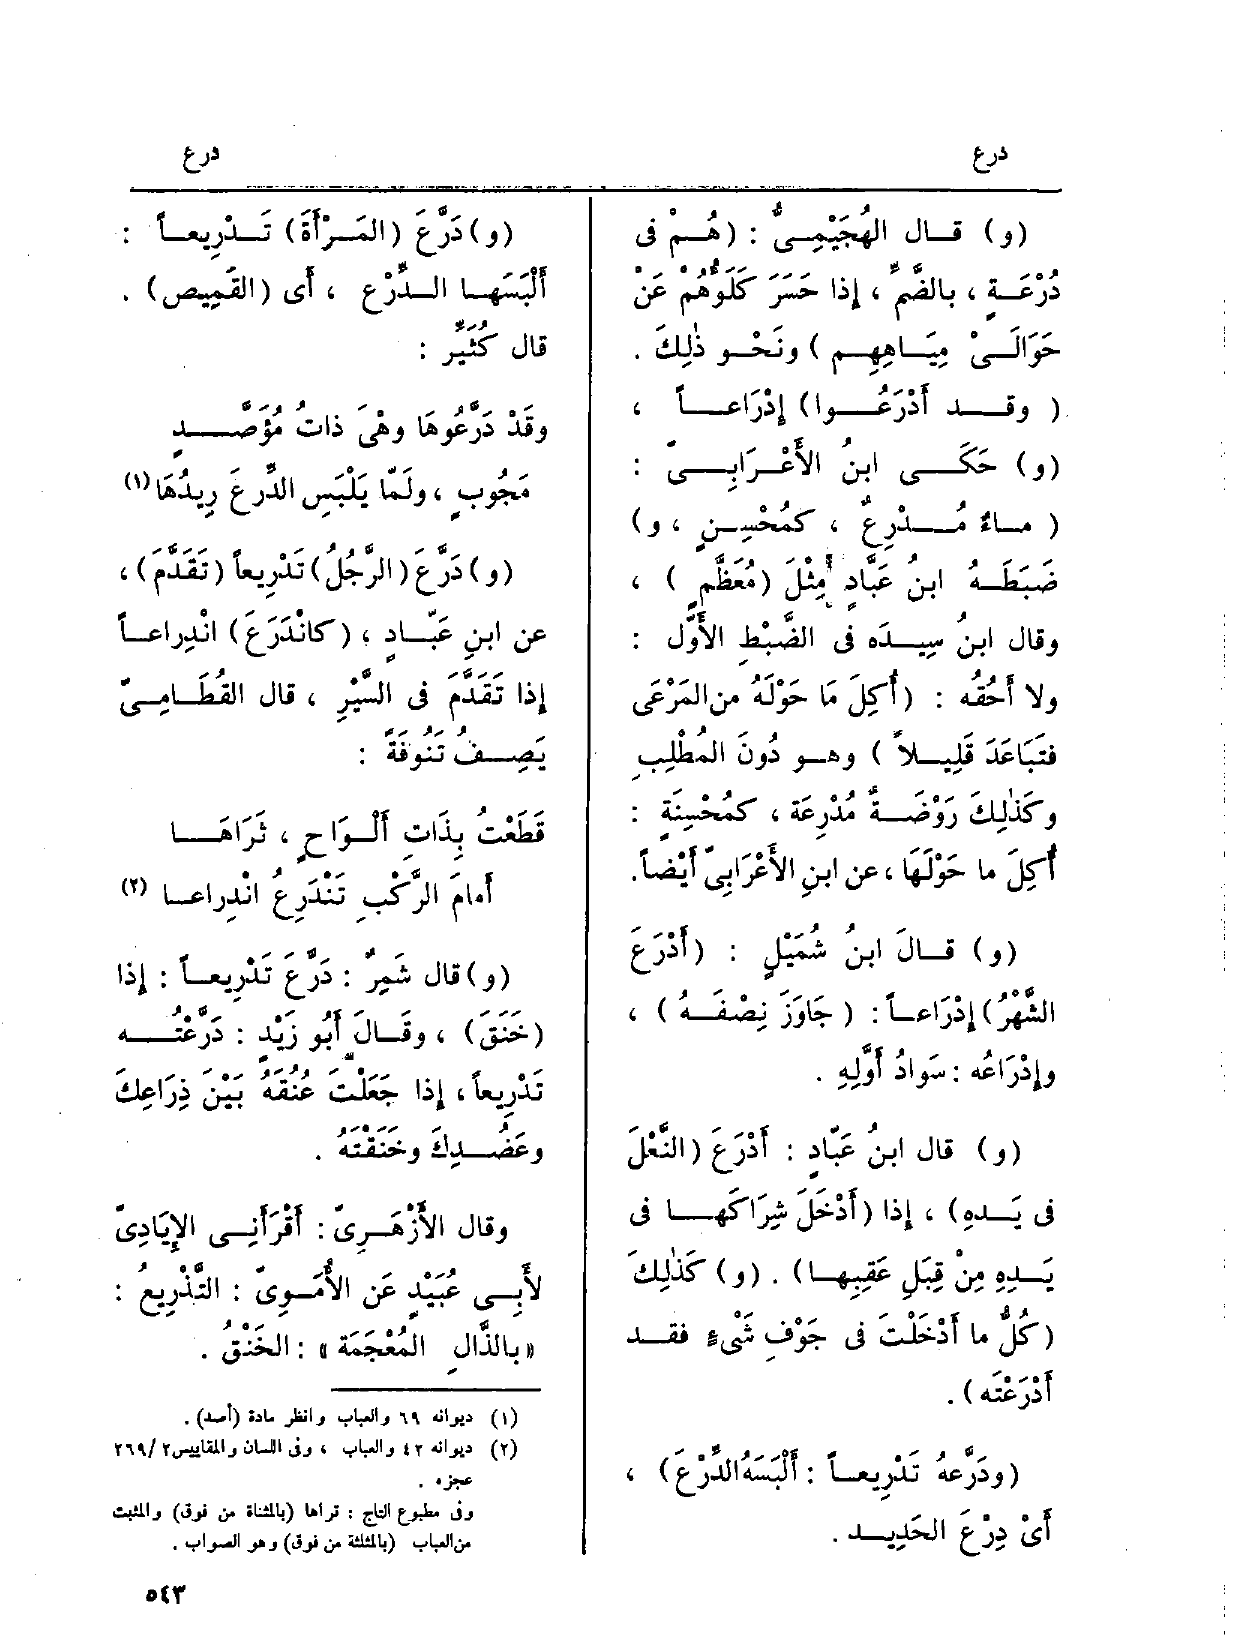 درع
درع
(و) قــال الهُجَيْمِــىُّ : (هُــمْ فى
دُرْعَــةٍ ، بالضَّمِّ ، إذا حَسَرَ كَلَؤُهُمْ عَنْ
حَوَالَــىْ مِيَــاهِهِــم ) ونَحْــو ذٰلِكَ .
( وقــــد أَدْرَعُــــوا) إِدْرَاعــــاً ،
(و) حَكَــــى ابنُ الأَعْــرَابِــــىّ :
( مــاءٌ مُــــدْرِعٌ ، كمُحْسِــنٍ ، و)
ضَبَطَــهُ ابنُ عَبَّادٍ مِثْلَ (مُعَظَّمٍ ) ،
وقال ابنُ سِيــدَه فى الضَّبْطِ الأَوَّلِ :
ولا أَحُقُّه : (أُكِلَ مَا حَوْلَهُ من المَرْعَى
فتَبَاعَدَ قَلِيــلاً ) وهــو دُونَ المُطْلِبِ
وكَذٰلِكَ رَوْضَــةٌ مُدْرِعَة ، كمُحْسِنَةٍ :
أُكِلَ ما حَوْلَهَا ، عن ابنِ الأَعْرَابِىّ أَيْضاً.
(و) قــالَ ابنُ شُمَيْلٍ : (أَدْرَعَ
الشَّهْرُ) إِدْرَاعــاً : ( جَاوَزَ نِصْفَــهُ ) ،
وإِدْرَاعُه : سَوادُ أَوَّلِهِ .
(و) قال ابنُ عَبَّادٍ : أَدْرَعَ (النَّعْلَ
فى يَــدِهِ) ، إذا (أَدْخَلَ شِرَاكَهــا فى
يَــدِهِ مِنْ قِبَلِ عَقِبِهــا) . (و) كَذٰلِكَ
(كُلُّ ما أَدْخَلْتَ فى جَوْفِ شَىْءٍ فقــد
أَدْرَعْتَه ) .
(ودَرَّعهُ تَدْرِيعــاً : أَلْبَسَهُ الدِّرْعَ) ،
أَىْ دِرْعَ الحَدِيــد .
(و) دَرَّعَ (المَــرْأَةَ) تَــدْرِيعــاً :
أَلْبَسَهــا الــدِّرْع ، أَى (القَمِيص) .
قال كُثَيِّرٌ :
وقَدْ دَرَّعُوهَا وهْىَ ذاتُ مُؤَصَّــــدٍ
مَجُوبٍ ، ولَمّا يَلْبَسِ الدِّرْعَ رِيدُهَا (١)
(و) دَرَّع (الرَّجُلُ) تَدْرِيعاً (تَقَدَّمَ) ،
عن ابنِ عَبّــادٍ ، (كانْدَرَعَ) انْدِراعــاً
إذا تَقَدَّمَ فى السَّيْرِ ، قال القُطَــامِــىّ
يَصِــفُ تَنُوفَةً :
قَطَعْتُ بِذَاتِ أَلْــوَاحٍ ، تَرَاهَــــا
أَمامَ الرَّكْبِ تَنْدَرِعُ انْدِراعــا (٢)
(و) قال شَمِرٌ : دَرَّعَ تَدْرِيعــاً : إذا
(خَنَقَ) ، وقــالَ أَبُو زَيْدٍ : دَرَّعْتُــــه
تَدْرِيعاً ، إذا جَعَلْــتَ عُنُقَهُ بَيْنَ ذِرَاعِكَ
وعَضُــدِكَ وخَنَقْتَهُ .
وقال الأَزْهَــرِىّ : أَقْرَأَنِــى الإِيَادِىّ
لأَبِــى عُبَيْدٍ عَنِ الأُمَــوِىّ : التَّذْرِيعُ :
« بالذَّالِ المُعْجَمَة » : الخَنْقُ .
(١) ديوانه ٦٩ والعباب وانظر مادة (أصد) .
(٢) ديوانه ٤٢ والعباب ، وفى اللسان والمقاييس ٢ /٢٦٩
عجزه .
وفى مطبوع التاج : تراها (بالمثناة من فوق) والمثبت
من العباب (بالمثلثة من فوق) وهو الصواب .
٥٤٣